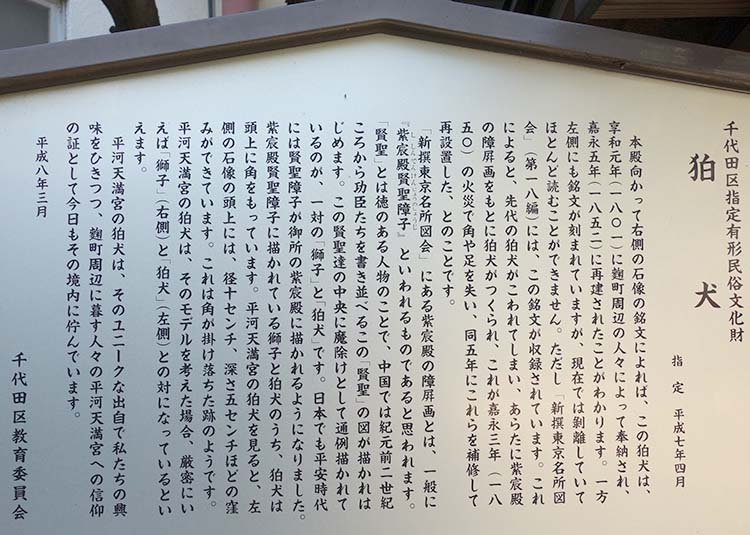 千代田区指定有形民俗文化財
狛犬
指定 平成七年四月
本殿向かって右側の石像の銘文によれば、この狛犬は、
享和元年(一八〇一)に麹町周辺の人々によって奉納され、
嘉永五年(一八五二)に再建されたことがわかります。一方
左側にも銘文が刻まれていますが、現在では剝離していて
ほとんど読むことができません。ただし「新撰東京名所図
会」(第一八編)には、この銘文が収録されています。これ
によると、先代の狛犬がこわれてしまい、あらたに紫宸殿
の障屏画をもとに狛犬がつくられ、これが嘉永三年(一八
五〇)の火災で角や足を失い、同五年にこれらを補修して
再設置した、とのことです。
「新撰東京名所図会」にある紫宸殿の障屏画とは、一般に
『紫宸殿賢聖障子』といわれるものであると思われます。
ししんでんけんじょうのしょうじ
「賢聖」とは徳のある人物のことで、中国では紀元前二世紀
ころから功臣たちを書き並べるこの「賢聖」の図が描かれは
じめます。この賢聖達の中央に魔除けとして通例描かれて
いるのが、一対の「獅子」と「狛犬」です。日本でも平安時代
には賢聖障子が御所の紫宸殿に描かれるようになりました。
紫宸殿賢聖障子に描かれている獅子と狛犬のうち、狛犬は
頭上に角をもっています。平河天満宮の狛犬を見ると、左
側の石像の頭上には、径十センチ、深さ五センチほどの窪
みができています。これは角が掛け落ちた跡のようです。
平河天満宮の狛犬は、そのモデルを考えた場合、厳密にい
えば「獅子」(右側)と「狛犬」(左側)との対になっているとい
えます。
平河天満宮の狛犬は、そのユニークな出自で私たちの興
味をひきつつ、麹町周辺に暮す人々の平河天満宮への信仰
の証として今日もその境内に佇んでいます。
平成八年三月
千代田区教育委員会